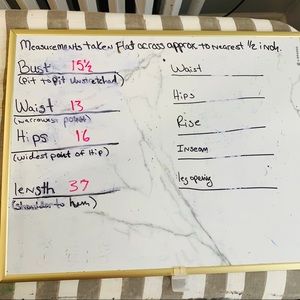 Measurements taken flat across approx to nearest 1/2 inch.
Bust 15 1/2
(pit to pit unstretched)
Waist 13
(narrowest point)
Hips 16
(widest point of Hip)
length 37
(shoulder to hem)
Waist
Hips
Rise
Inseam
leg opening